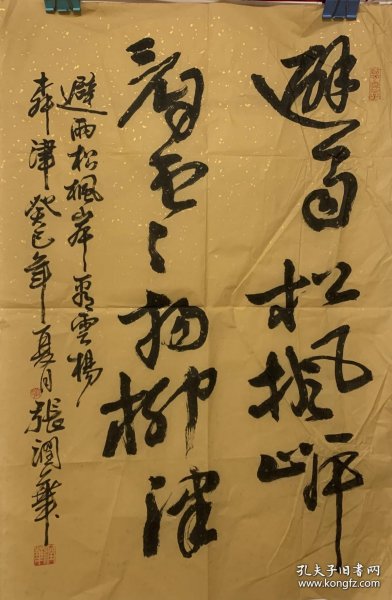 避雨松楓岸
看雲楊柳津
避雨松楓岸看雲楊
柳津癸巳年夏月張潤華
孔夫子旧书网
www.kongfz.com